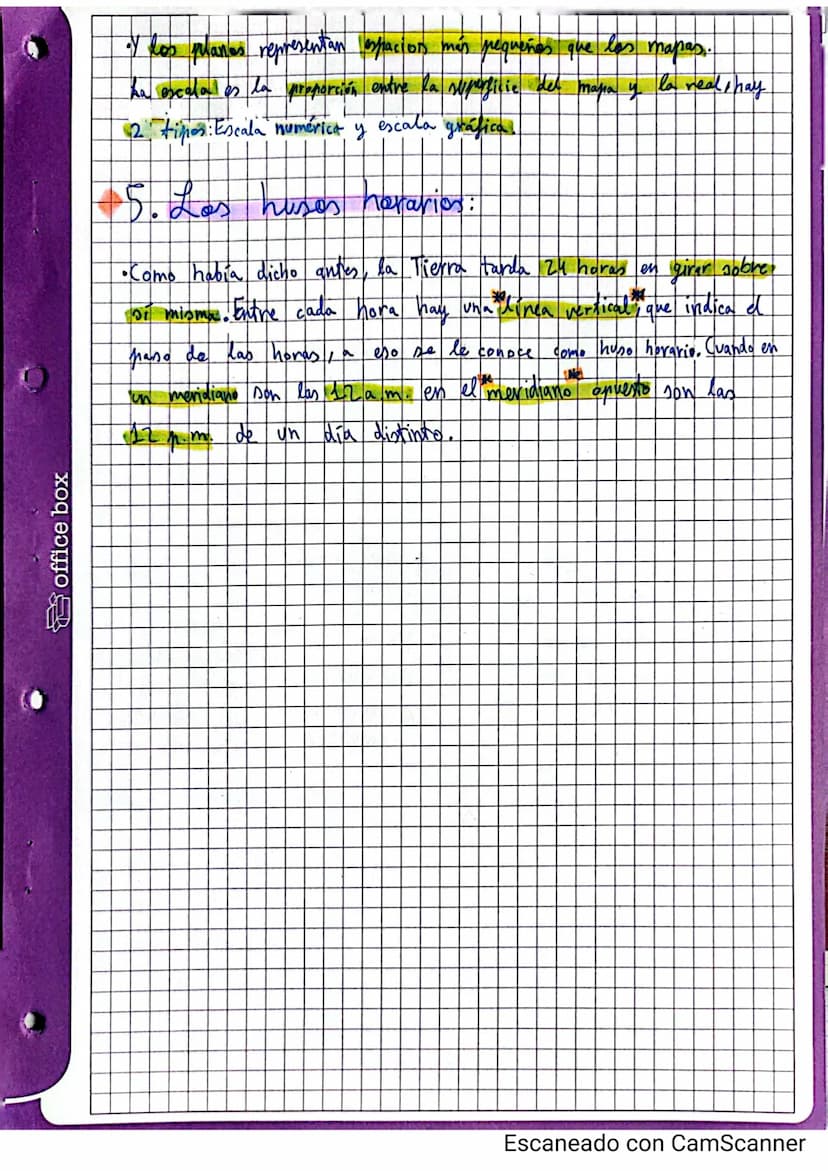 ·Y los planos representan espacios más pequeños que los mapas.
La escala es la proporción entre la superficie del mapa y la real, hay
2 tipos: Escala numérica y escala gráfica.
5. Los husos horarios:
·Como había dicho antes, la Tierra tarda 24 horas en girar sobre
sí misma. Entre cada hora hay una "línea vertical", que indica el
paso de las horas, a eso se le conoce como huso horario. Cuando en
un meridiano son las 12 a.m. en el "meridiano" opuesto son las
12 p.m. de un día distinto.
office box
Escaneado con CamScanner